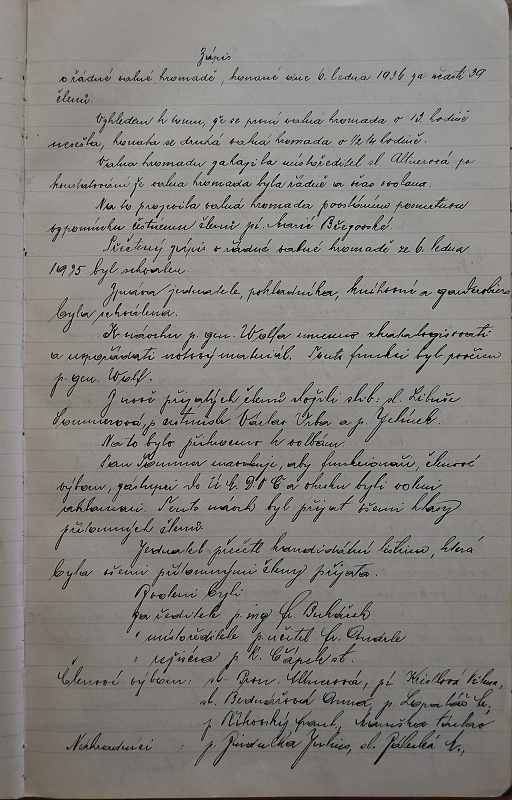 Zápis
o řádné valné hromadě, konané dne 6. ledna 1936 za účasti 39
členů.
Vzhledem k tomu, že se první valná hromada o 13. hodině
nesešla, konala se druhá valná hromada o ½ 14 hodině.
Valnou hromadu zahájila místoředitel sl. Altnerová po
konstatování že valná hromada byla řádně a včas svolána.
Na to projevila valná hromada povstáním pomětnou
vzpomínku čestnému členu pí. Marii Březovské.
Přečtený zápis o řádné valné hromadě ze 6. ledna
1935 byl schválen.
Zpráva jednatele, pokladníka, knihovní a garderobiera
byla schválena.
K návrhu p. gen. Wolfa usneseno zkatalogisovati
a uspořádati notový materiál. Touto funkcí byl pověřen
p. gen. Wolf.
Z nově přijatých členů složili slib: sl. Libuše
Sommerová, p. Václav Vrba a p. Jelínek.
Na to bylo přikročeno k volbám.
Pan Sommer navrhuje, aby funkcionáři, členové
výboru, zástupci do Ú. M. D. O. Č. a okrsku byli voleni
aklamací. Tento návrh byl přijat všemi hlasy
přítomných členů.
Jednatel přečetl kandidátní listinu, která
byla všemi přítomnými členy přijata.
Zvoleni byli
za ředitele p. ing. Fr.
" místoředitele p. učitel Fr. Andrle
" režiséra p. K. Čápek st.
Členové výboru: sl. Altnerová, pí.
sl. Bednářová Anna, p.
p. Řihovský Frant., Maruška Václav
Náhradníci : p. Julius, sl.